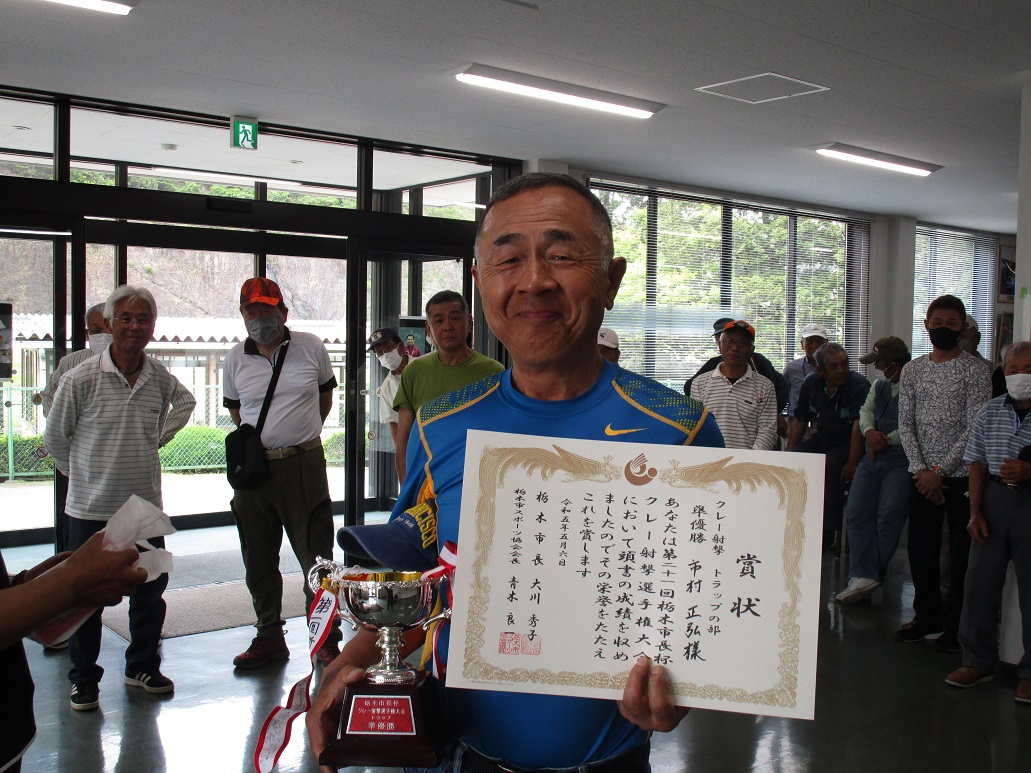 賞状
クレー射撃 トラップの部
準優勝 市村 正弘様
あなたは第二十一回栃木市長杯
クレー射撃選手権大会
において頭書の成績を収め
ましたのでその栄誉をたたえ
これを賞します
令和五年五月六日
栃木市長 大川 秀子
栃木市スポーツ協会会長 青木 良
栃木市長杯
クレー射撃選手権大会
トラップ
準優勝